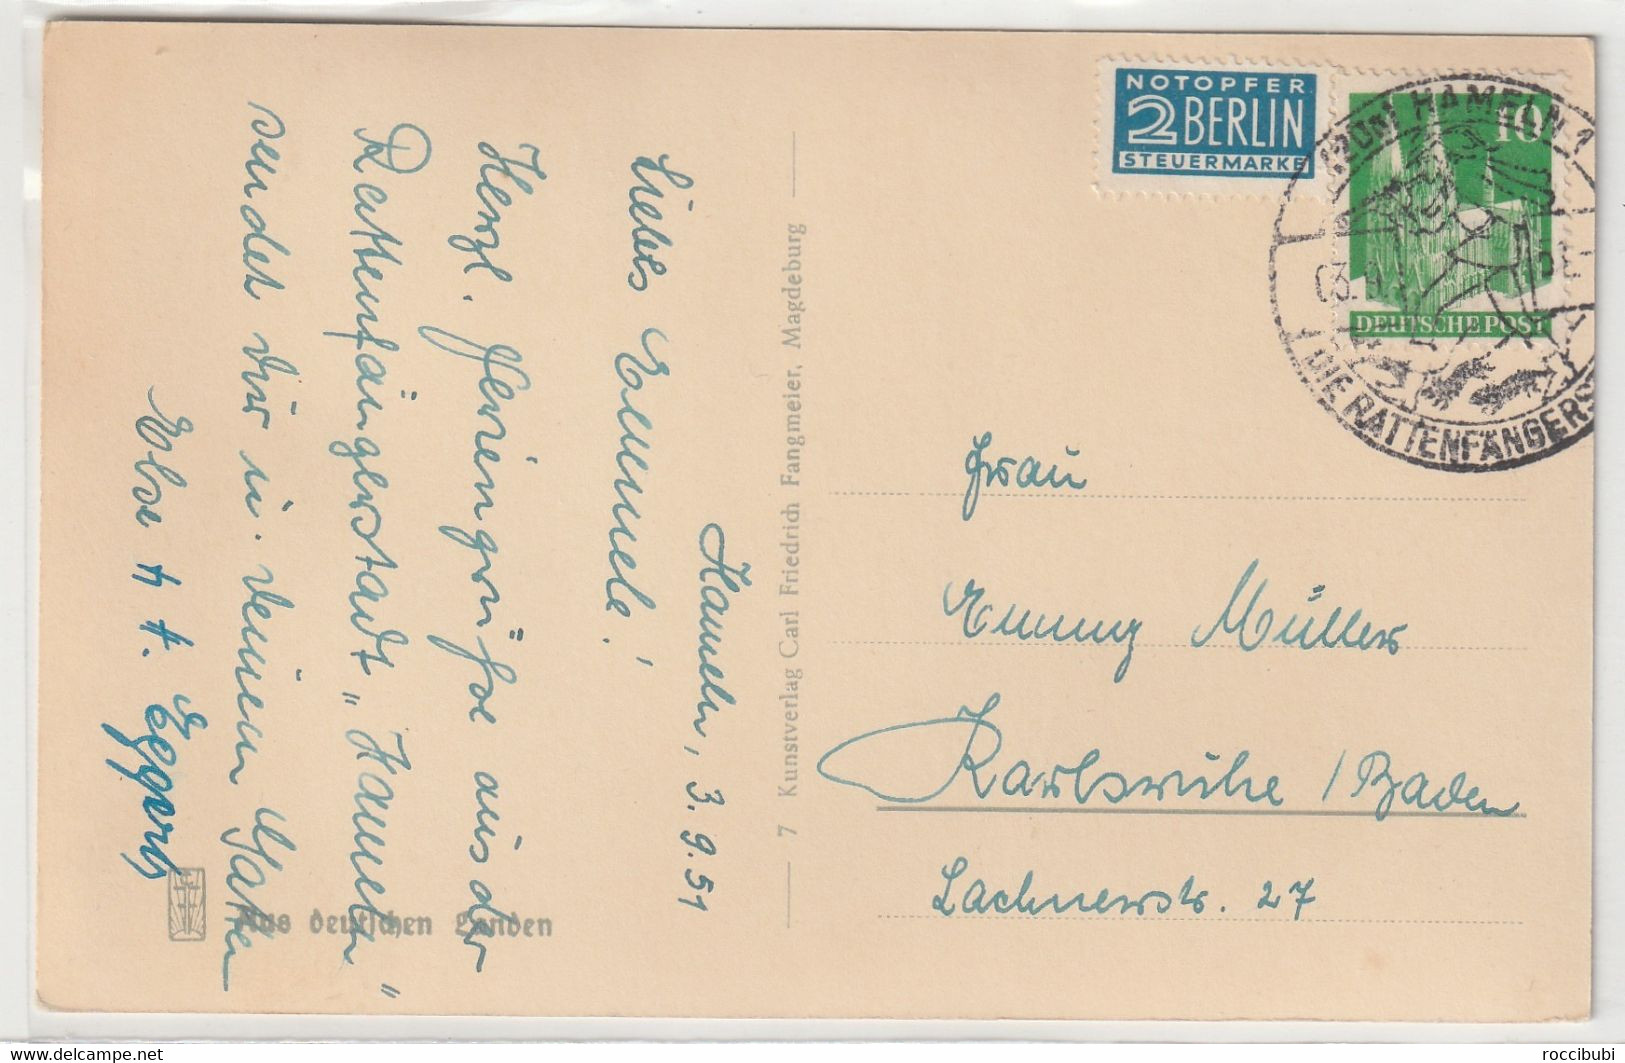 Hameln, 3.9.51
Liebes Emmele!
Herzl. Feriengrüße aus der
Rattenfängerstadt „Hameln"
sendet dir u. deinem Gatten
Else u. H. Eggers
Aus deutschen Landen
7 Kunstverlag Carl Friedrich Fangmeier, Magdeburg
NOTOPFER
2 BERLIN
STEUERMARKE
10
DEUTSCHE POST
HAMELN 1
DIE RATTENFÄNGERS
Frau
Emmy Müller
Karlsruhe / Baden
Lachnerstr. 27
roccibubi